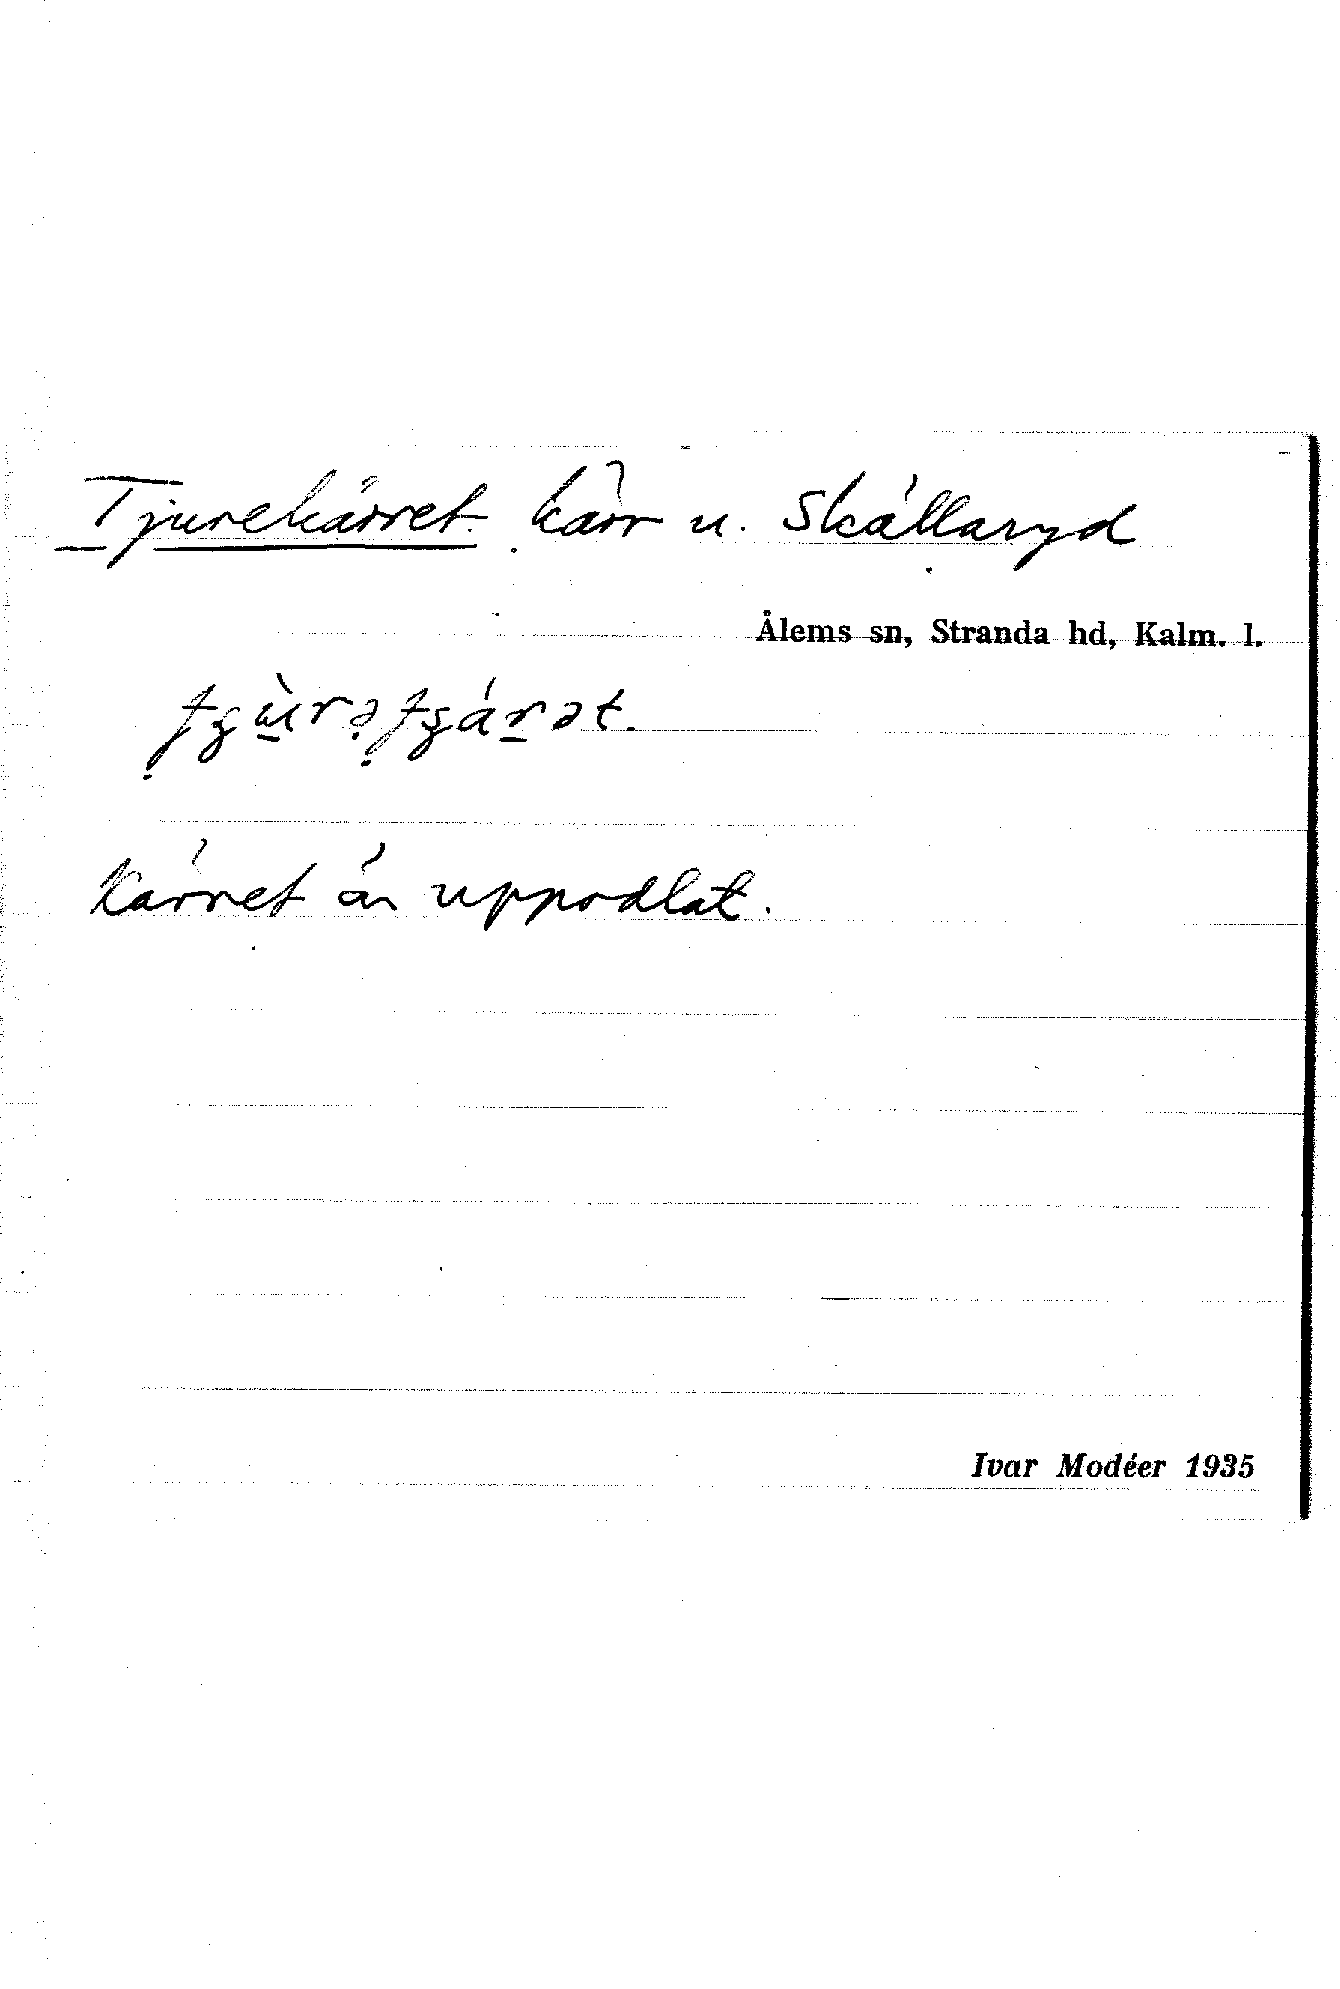 Tjurekärret. kärr u. Skällaryd
Ålems sn, Stranda hd, Kalm. l.
Kärret är uppodlat.
Ivar Modéer 1935